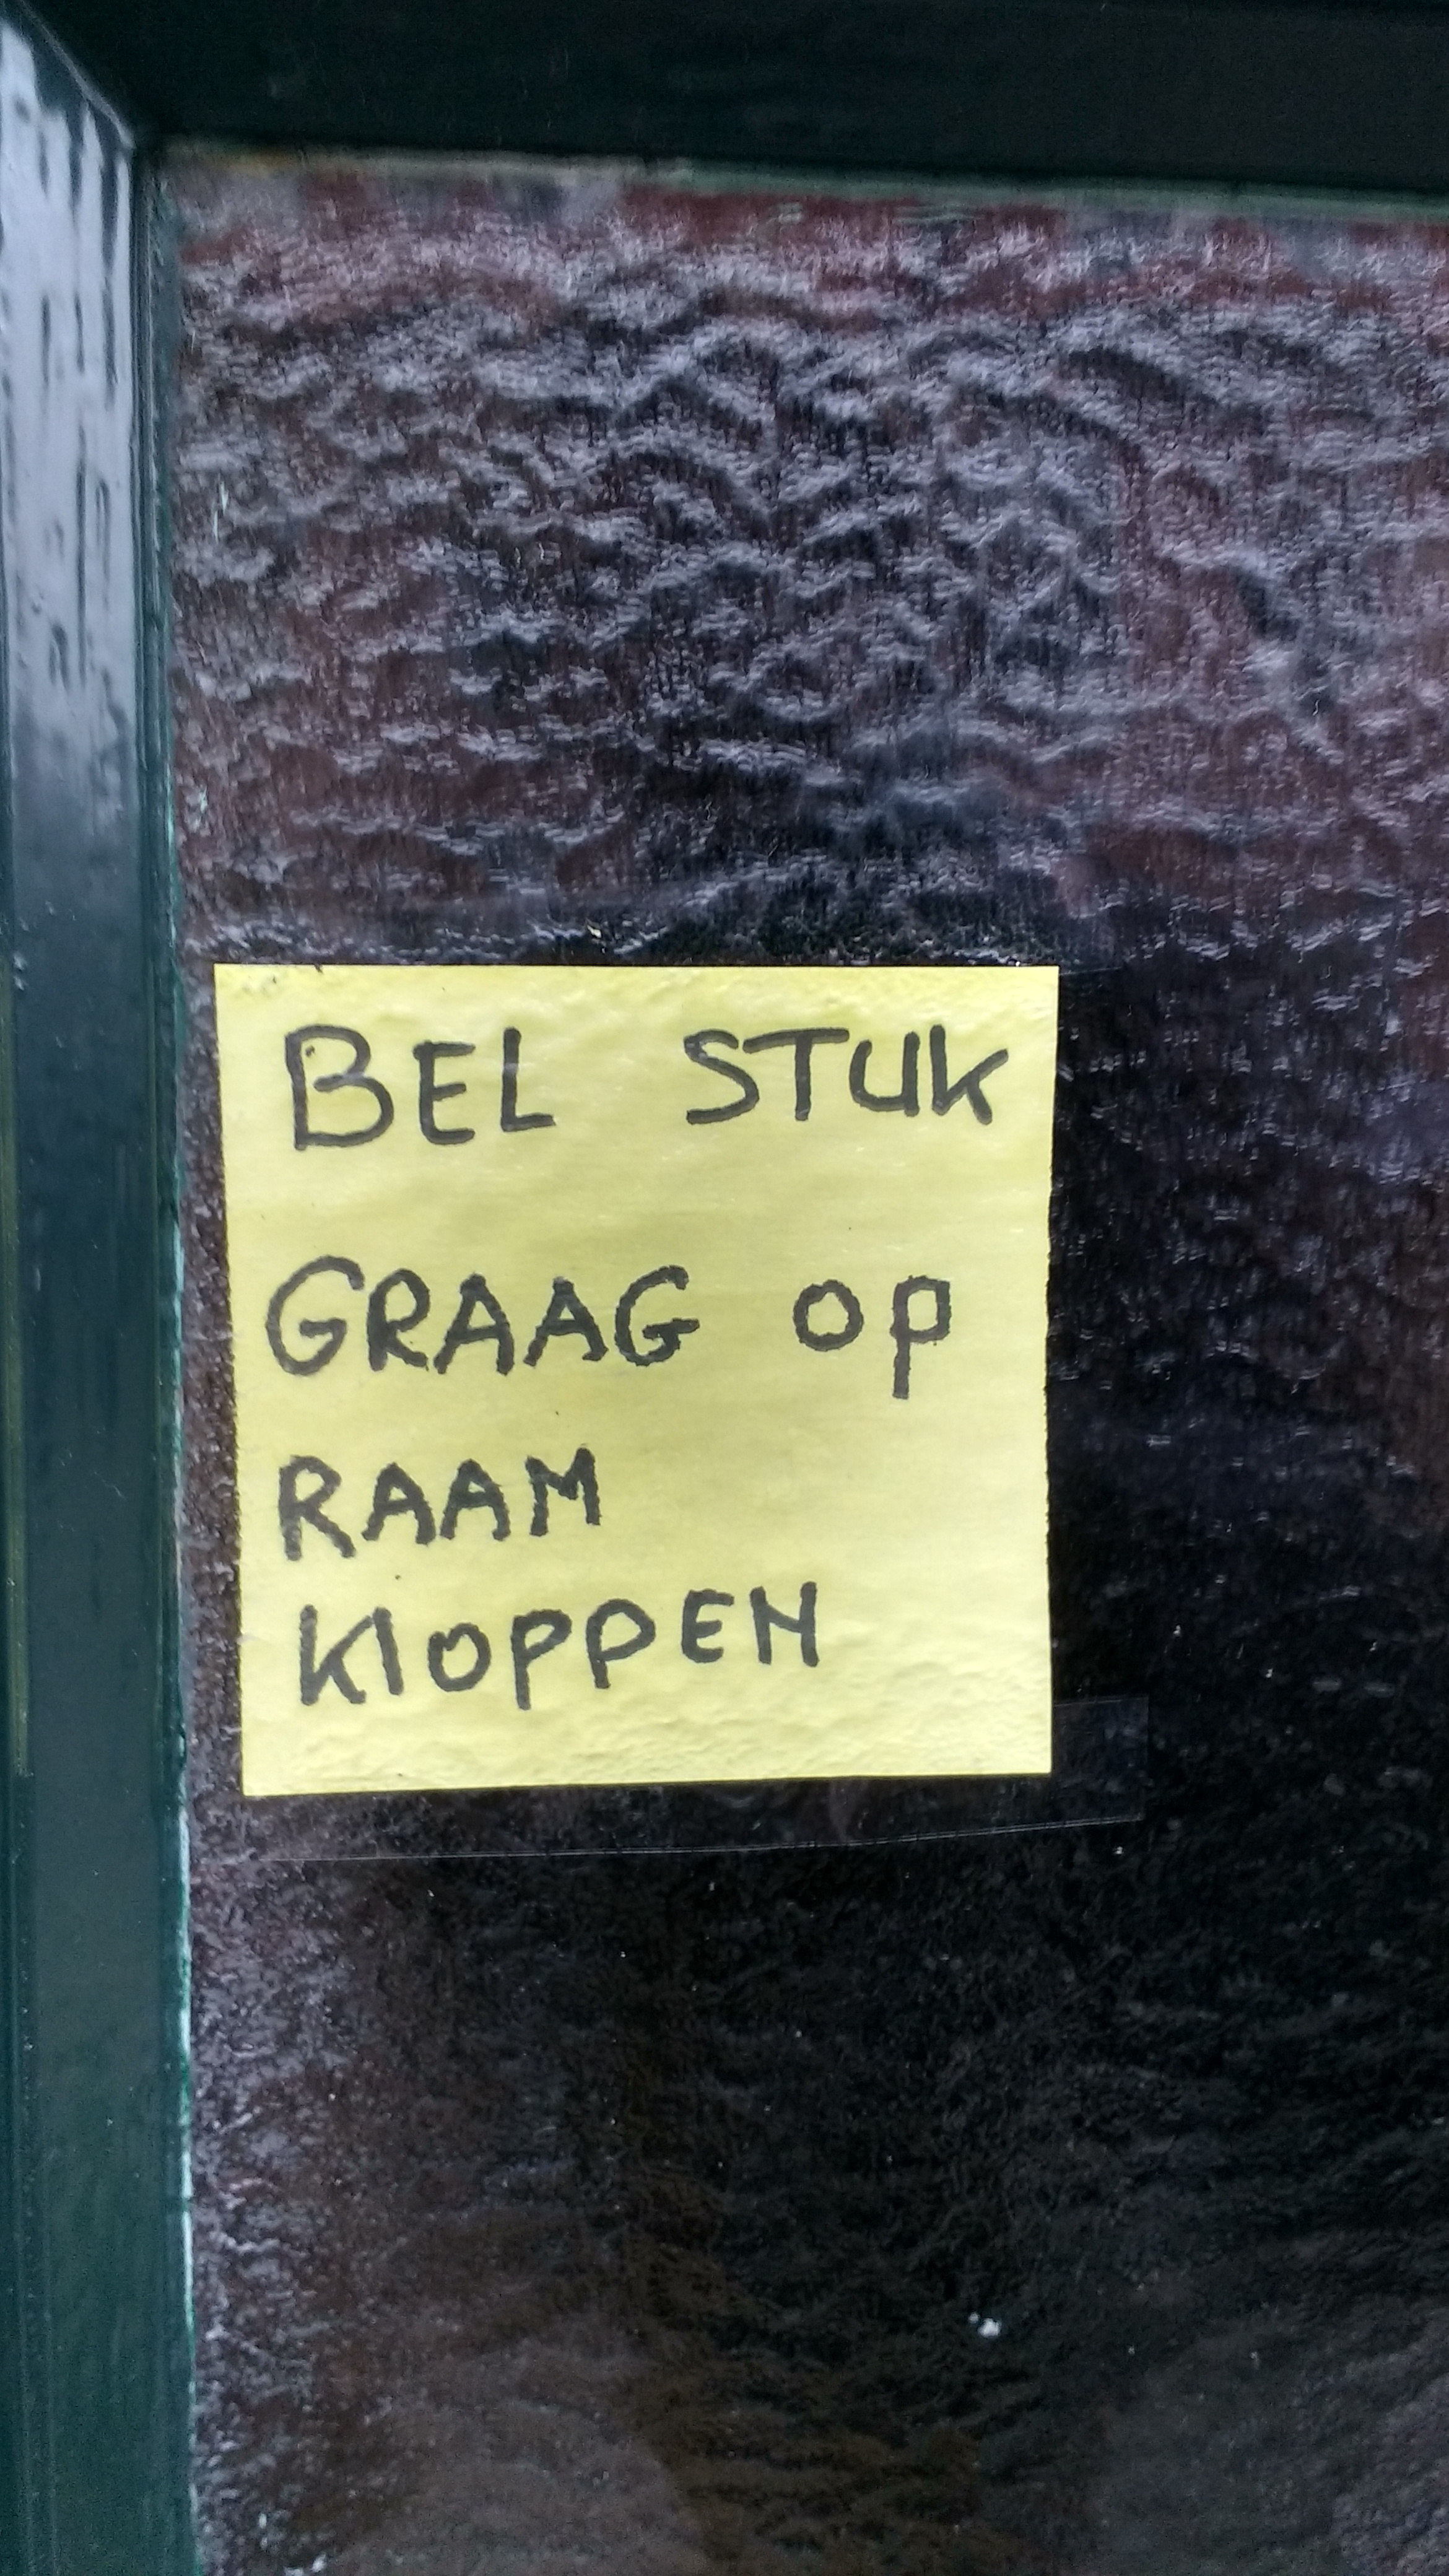 BEL STUK
GRAAG op
RAAM
KloppEN